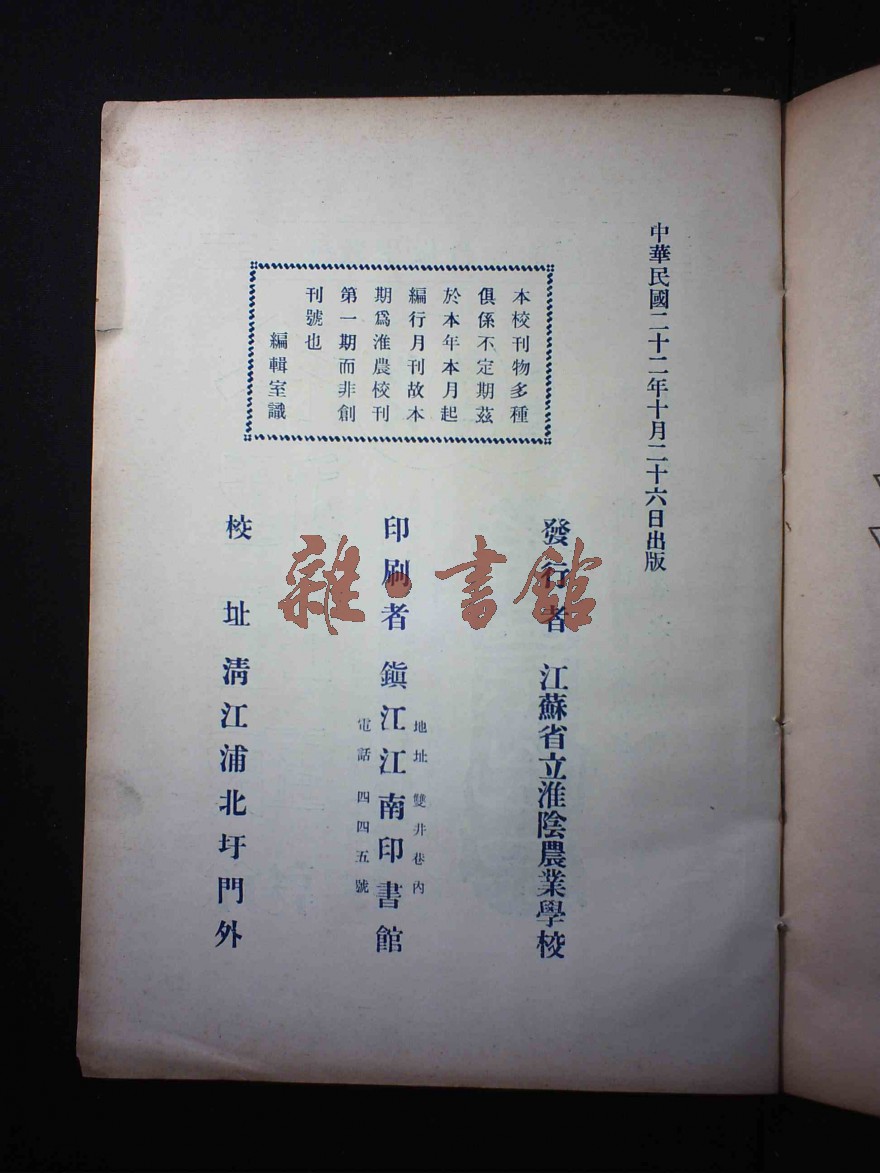 中華民國二十二年十月二十六日出版
本校刊物多種
俱係不定期茲
於本年本月起
編行月刊故本
期爲淮農校刊
第一期而非創
刊號也
編輯室識
發行者 江蘇省立淮陰農業學校
印刷者 鎭江江南印書館
地址 雙井巷內
電話 四四五號
校址 淸江浦北圩門外
雜·書館